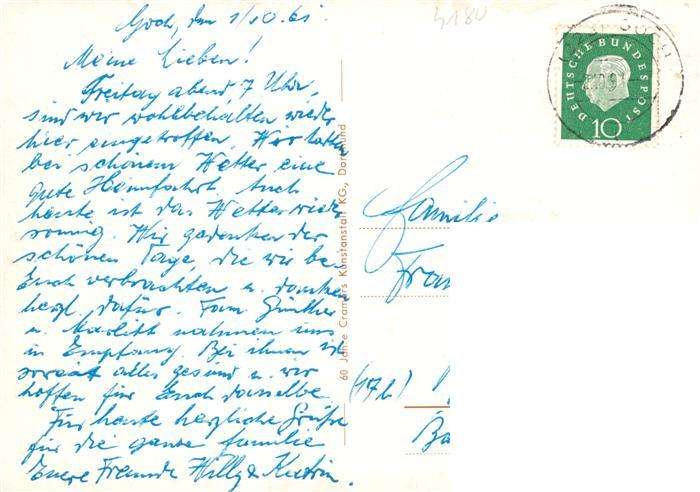 Goch, den 1/10.61.
Meine Lieben!
Freitag abend, 7 Uhr,
sind wir wohlbehalten wieder
hier eingetroffen. Wir hatten
bei schönem Wetter eine
gute Heimfahrt. Auch
heute ist das Wetter wieder
sonnig. Wir gedenken der
schönen Tage, die wir bei
Euch verbrachten u. danken
herzl. dafür. Fam. Günther
u. nahmen uns
in Empfang. Bei ihnen ist
soweit alles gesund u. wir
hoffen für Euch dasselbe.
Für heute herzliche Grüße
für die ganze Familie
Eure Freunde Willy & Katrin.
60 Jahre Cramers Kunstanstalt KG., Dortmund
DEUTSCHE BUNDESPOST
10
GOCH
Familie
Fran
(17b)
Ba